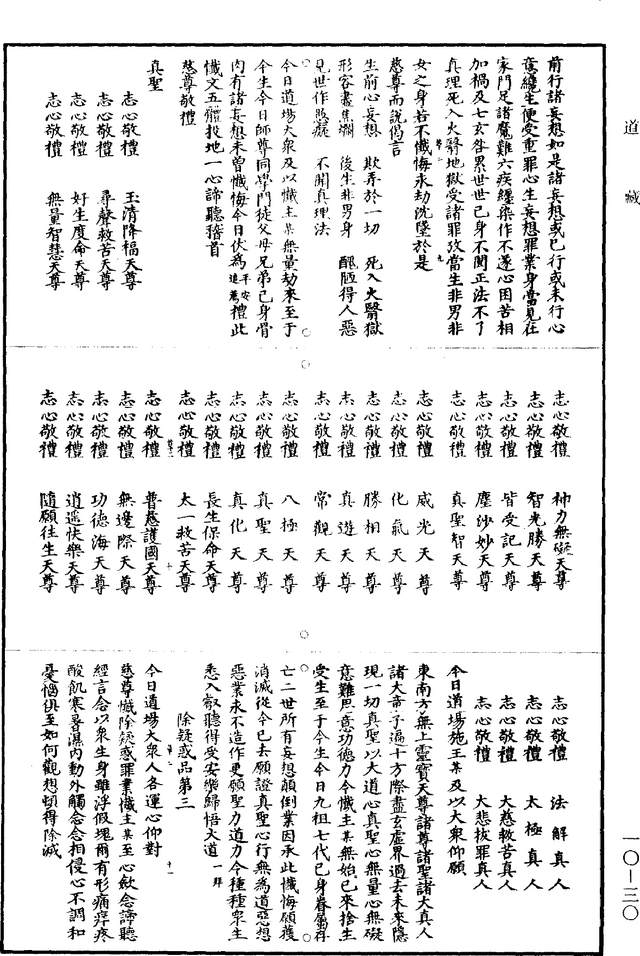 道藏
前行諸妄想如是諸妄想或已行或未行心
意纏生便受重罪心生妄想罪業身當見在
家門足諸魔難六疾纏染作不遂心困苦相
加禍及七玄咎累世世己身不聞正法不了
真理死入火醫地獄受諸罪攷當生非男非
女之身若不懺悔永劫沈墜於是
慈尊而說偈言
生前心妄想　欺弄於一切　死入火醫獄
形容盡焦爛　後生非男身　醜陋得人惡
見世作愚癡　不聞真理法
今日道場大衆及以懺主某無量劫來至于
今生今日師尊同學門徒父母兄弟己身骨
肉有諸妄想未曾懺悔今日伏為平安追薦禮此
懺文五體投地一心諦聽稽首
慈尊敬禮
真聖
志心敬禮　玉清降福天尊
志心敬禮　尋聲救苦天尊
志心敬禮　好生度命天尊
志心敬禮　無量智慧天尊
志心敬禮　神力無礙天尊
志心敬禮　智光勝天尊
志心敬禮　皆受記天尊
志心敬禮　塵沙妙天尊
志心敬禮　真聖智天尊
志心敬禮　威光天尊
志心敬禮　化氣天尊
志心敬禮　勝相天尊
志心敬禮　真遊天尊
志心敬禮　常觀天尊
志心敬禮　八極天尊
志心敬禮　真聖天尊
志心敬禮　真化天尊
志心敬禮　長生保命天尊
志心敬禮　太一救苦天尊
志心敬禮　普慈護國天尊
志心敬禮　無邊際天尊
志心敬禮　功德海天尊
志心敬禮　逍遥快樂天尊
志心敬禮　隨願往生天尊
志心敬禮　法解真人
志心敬禮　太極真人
志心敬禮　大慈救苦真人
志心敬禮　大悲拔罪真人
今日道場施主某及以大衆仰願
東南方無上靈寶天尊諸尊諸聖諸大真人
諸大帝子遍十方際盡玄虛界過去未來隱
現一切真聖以大道心真聖心無量心無礙
意難思意功德力令懺主某無始已來捨生
受生至于今生今日九祖七代己身眷屬存
亡二世所有妄想顛倒業因承此懺悔願獲
消滅從今已去願證真聖心行無為道惡想
惡業永不造作更願聖力道力令種種衆生
悉入叡聽得受安樂歸悟大道　一拜
除疑惑品第三
今日道場大衆人各運心仰對
慈尊懺除疑惑罪業懺主某至心歛念諦聽
經言念以衆生身雖浮假塊爾有形痛痒疼
酸飢寒暑濕內動外觸念念相侵心不調和
憂惱俱至如何觀想頓得除滅
一〇—三〇